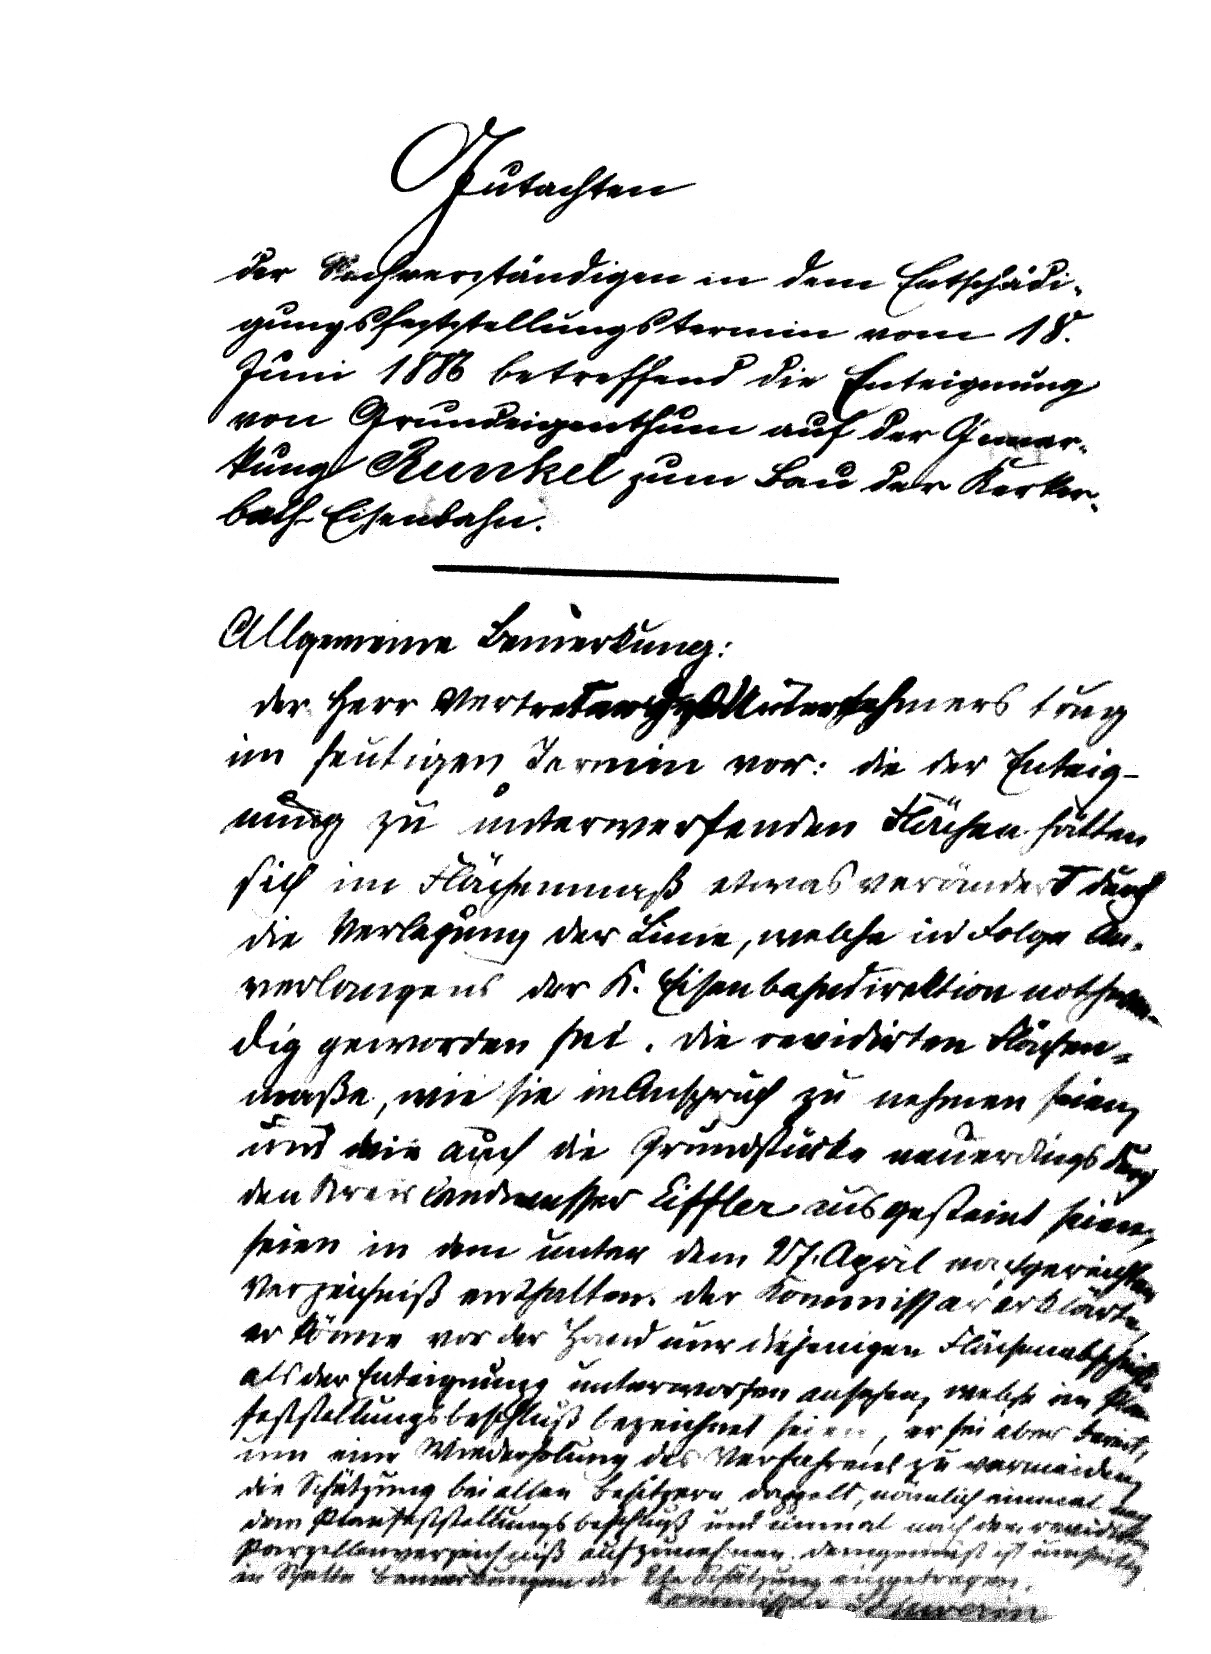 Gutachten
der Sachverständigen in dem Entschädi-
gungsfeststellungstermin vom 18.
Juni 1886 betreffend die Enteignung
von Grundeigenthum auf der Gemar-
kung Runkel zum Bau der Kerker-
bach-Eisenbahn.
Allgemeine Bemerkung:
der Herr Vertreter des Unternehmers trug
im heutigen Termin vor: die der Enteig-
nung zu unterwerfenden Flächen hätten
sich im Flächenmaß etwas verändert durch
die Verlegung der Linie, welche in Folge An-
verlangens der K. Eisenbahndirektion nothwen-
dig geworden sei. die revidirten Flächen-
maße, wie sie in Anspruch zu nehmen seien,
und wie auch die Grundstücke neuerdings durch
den Kreislandmesser Eiffler ausgesteint seien,
seien in dem unter dem 27. April nachgereichten
Verzeichniß enthalten. der Kommissar erklärte,
er könne vor der Hand nur diejenigen Flächenabschnitte
als der Enteignung unterworfen ansehen, welche im Plan
feststellungsbeschluß bezeichnet seien, er sei aber bereit,
um eine Wiederholung des Verfahrens zu vermeiden,
die Schätzung bei allen Besitzern doppelt, nämlich einmal nach
dem Planfeststellungsbeschluß und einmal nach dem revidirten
Parzellenverzeichniß aufzunehmen. demgemäß ist umseitig
in Spalte Bemerkungen die Schätzung eingetragen.
Kommissar